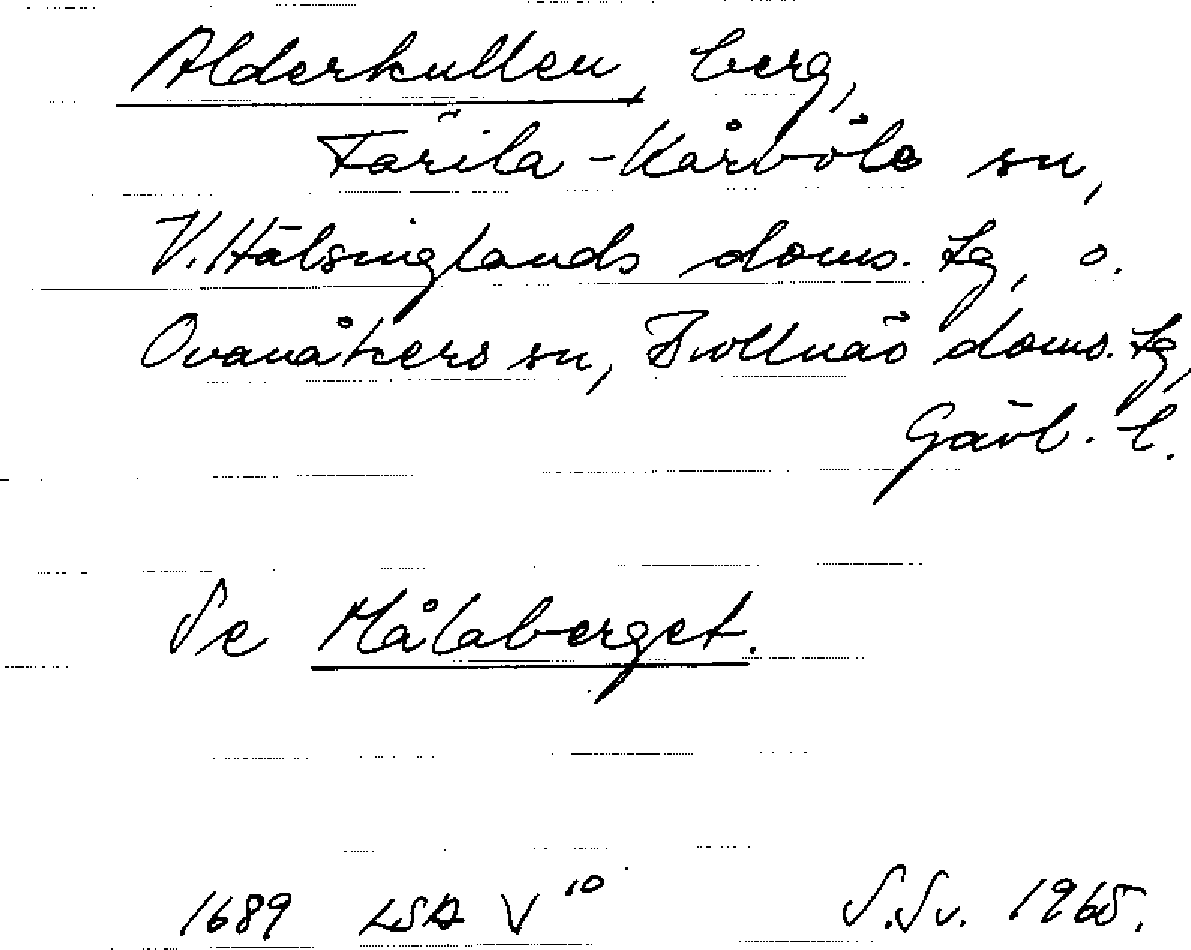 Alderkullen, berg,
Färila-Kårböle sn,
V. Hälsinglands doms. tg, o.
Ovanåkers sn, Bollnäs doms. tg,
Gävl. l.
Se Målaberget.
1689 LSA V 10 S.Sv. 1965.